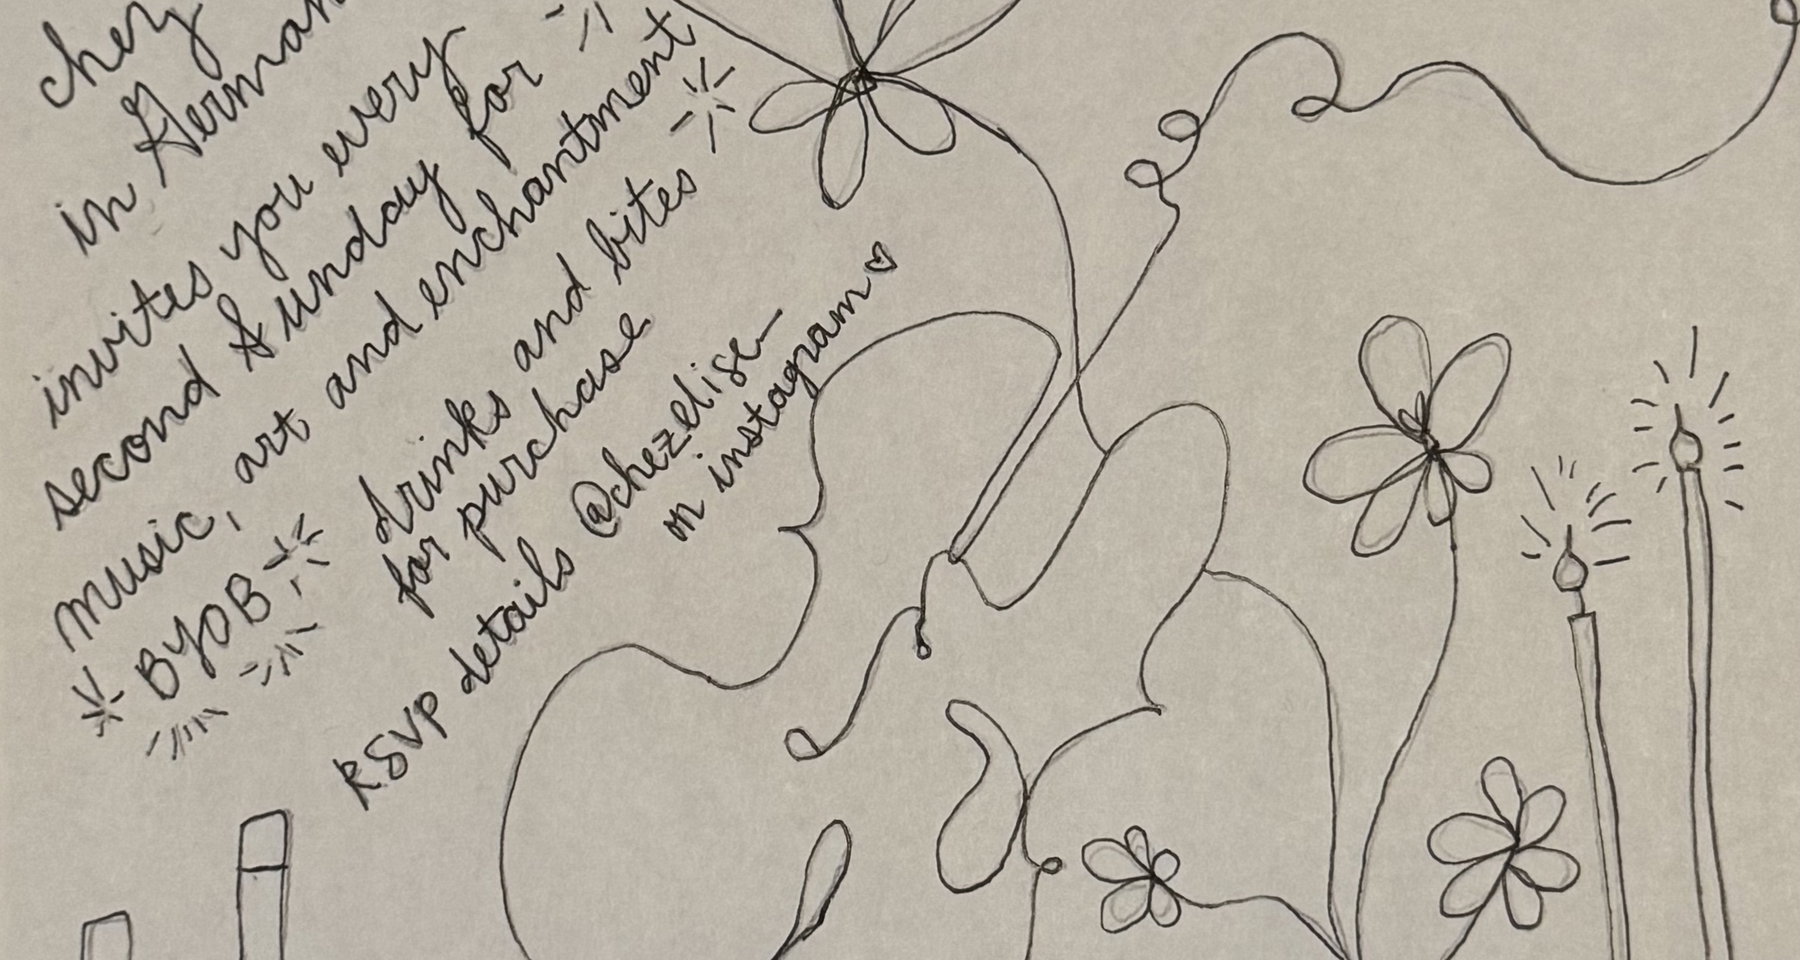 chez
in
invites you every
second Sunday for
music, art and enchantment
BYOB
drinks and bites
for purchase
RSVP details @chezelise_
on instagram